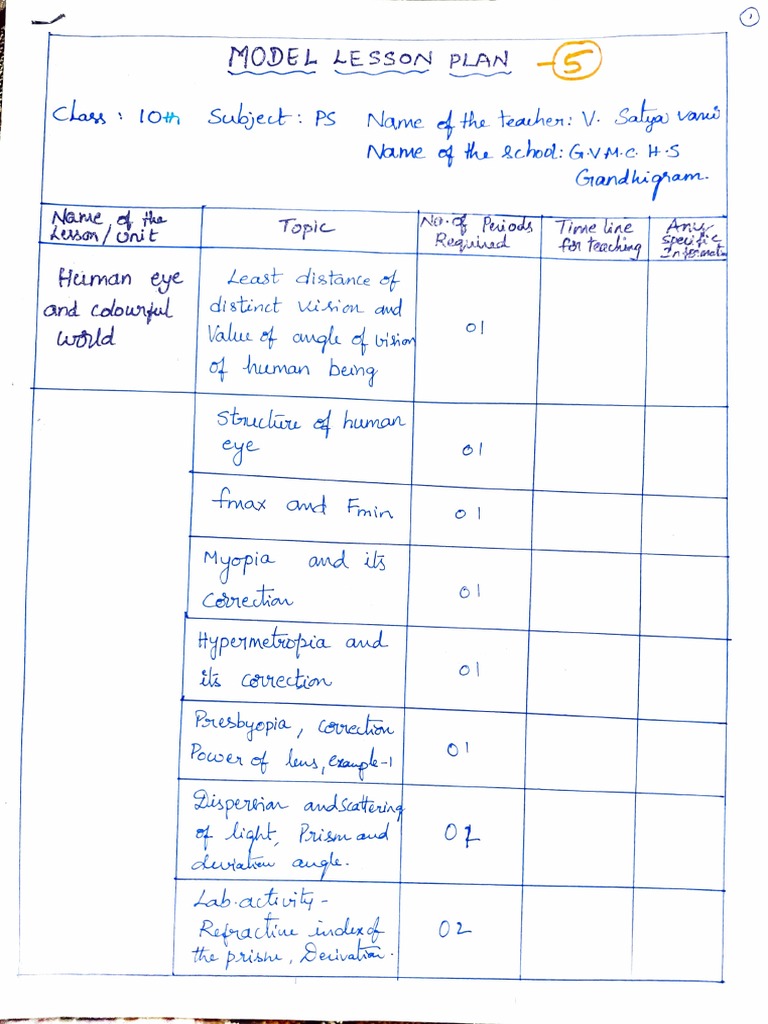 1
MODEL LESSON PLAN - 5
Class : 10th Subject : PS Name of the teacher: V. Satya vani
Name of the school: G.V.M.C. H.S
Gandhigram.
Name of the
Lesson/Unit
Topic
No. of Periods
Required
Time line
for teaching
Any
specific
Information
Human eye
and colourful
world
Least distance of
distinct vision and
Value of angle of vision
of human being
01
Structure of human
eye
01
fmax and Fmin
01
Myopia and its
correction
01
Hypermetropia and
its correction
01
Presbyopia, correction
Power of lens, example-1
01
Dispersion and scattering
of light, Prism and
deviation angle.
Lab.activity -
Refractive index of
the prism, Derivation.
02